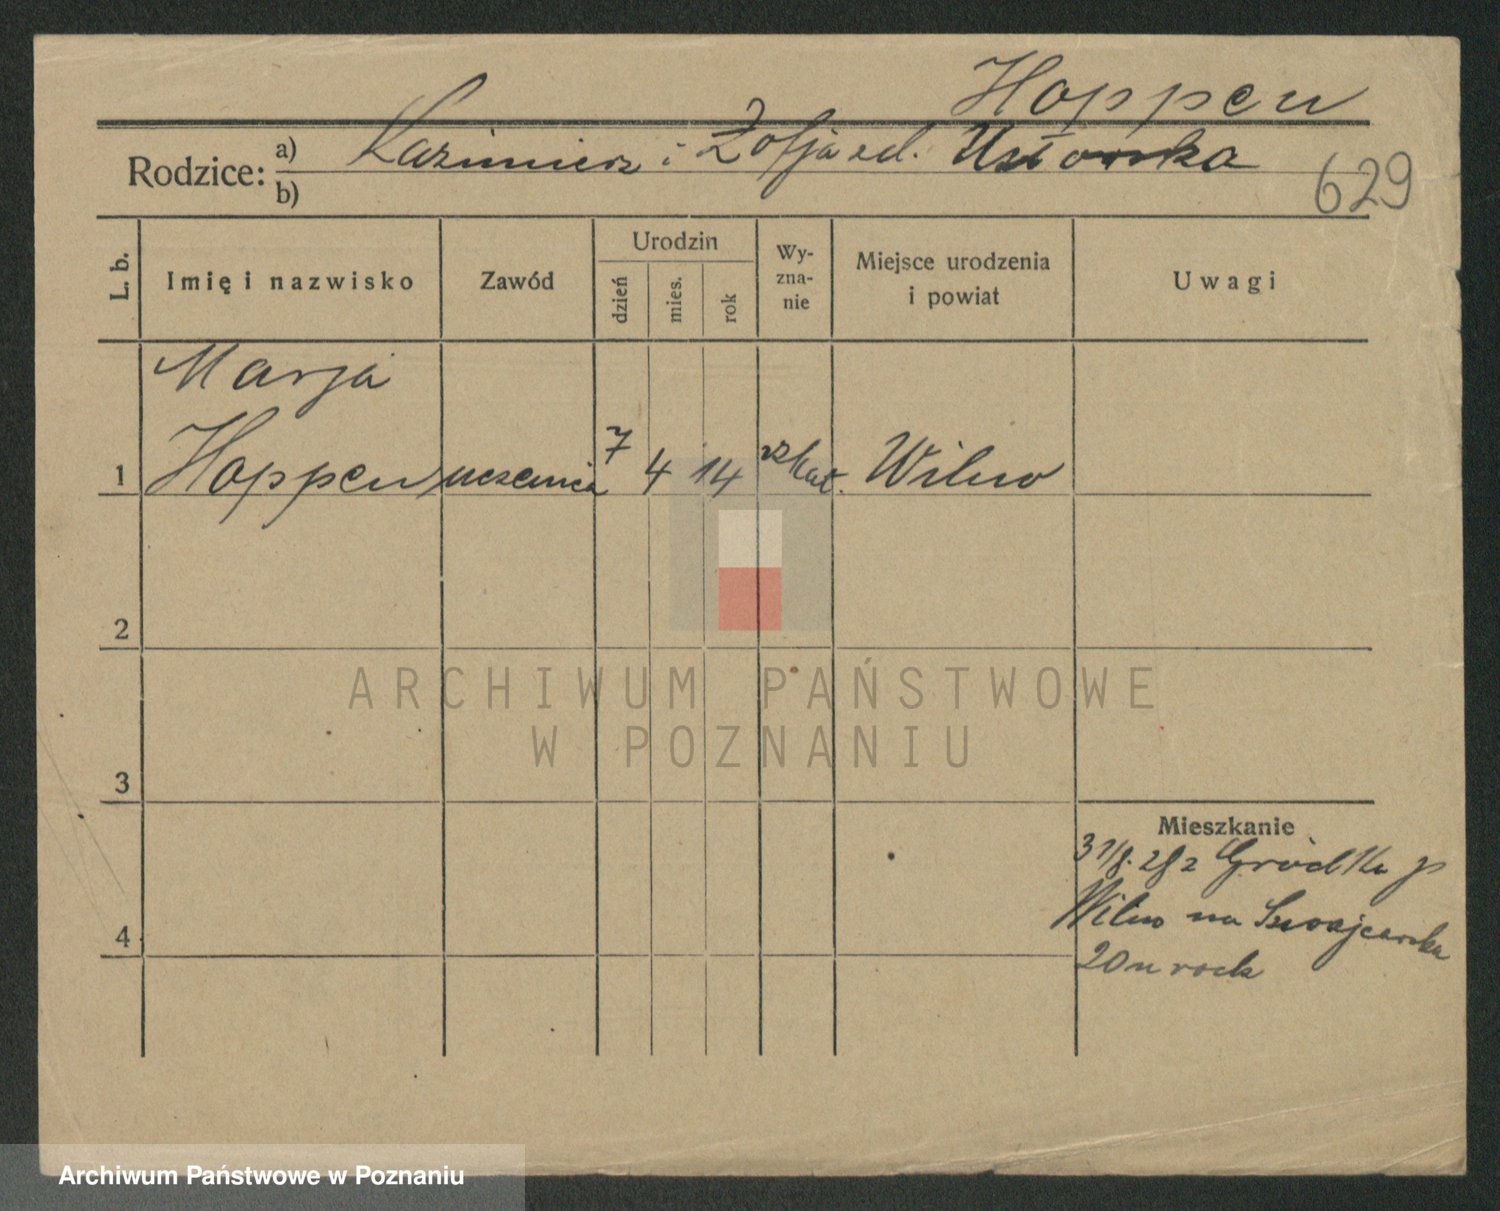 Hoppen
Rodzice: a) Kazimierz i Zofja zd.
b)
629
L. b.
Imię i nazwisko
Zawód
Urodzin
dzień
mies.
rok
Wy-
zna-
nie
Miejsce urodzenia
i powiat
Uwagi
Marja
1 Hoppen uczenica 7 4 14 rz kat. Wilno
2
3
4
Mieszkanie
31/8. 28 z Gródka p
Wilno na Szwajcarska
20
ARCHIWUM PAŃSTWOWE
W POZNANIU
Archiwum Państwowe w Poznaniu